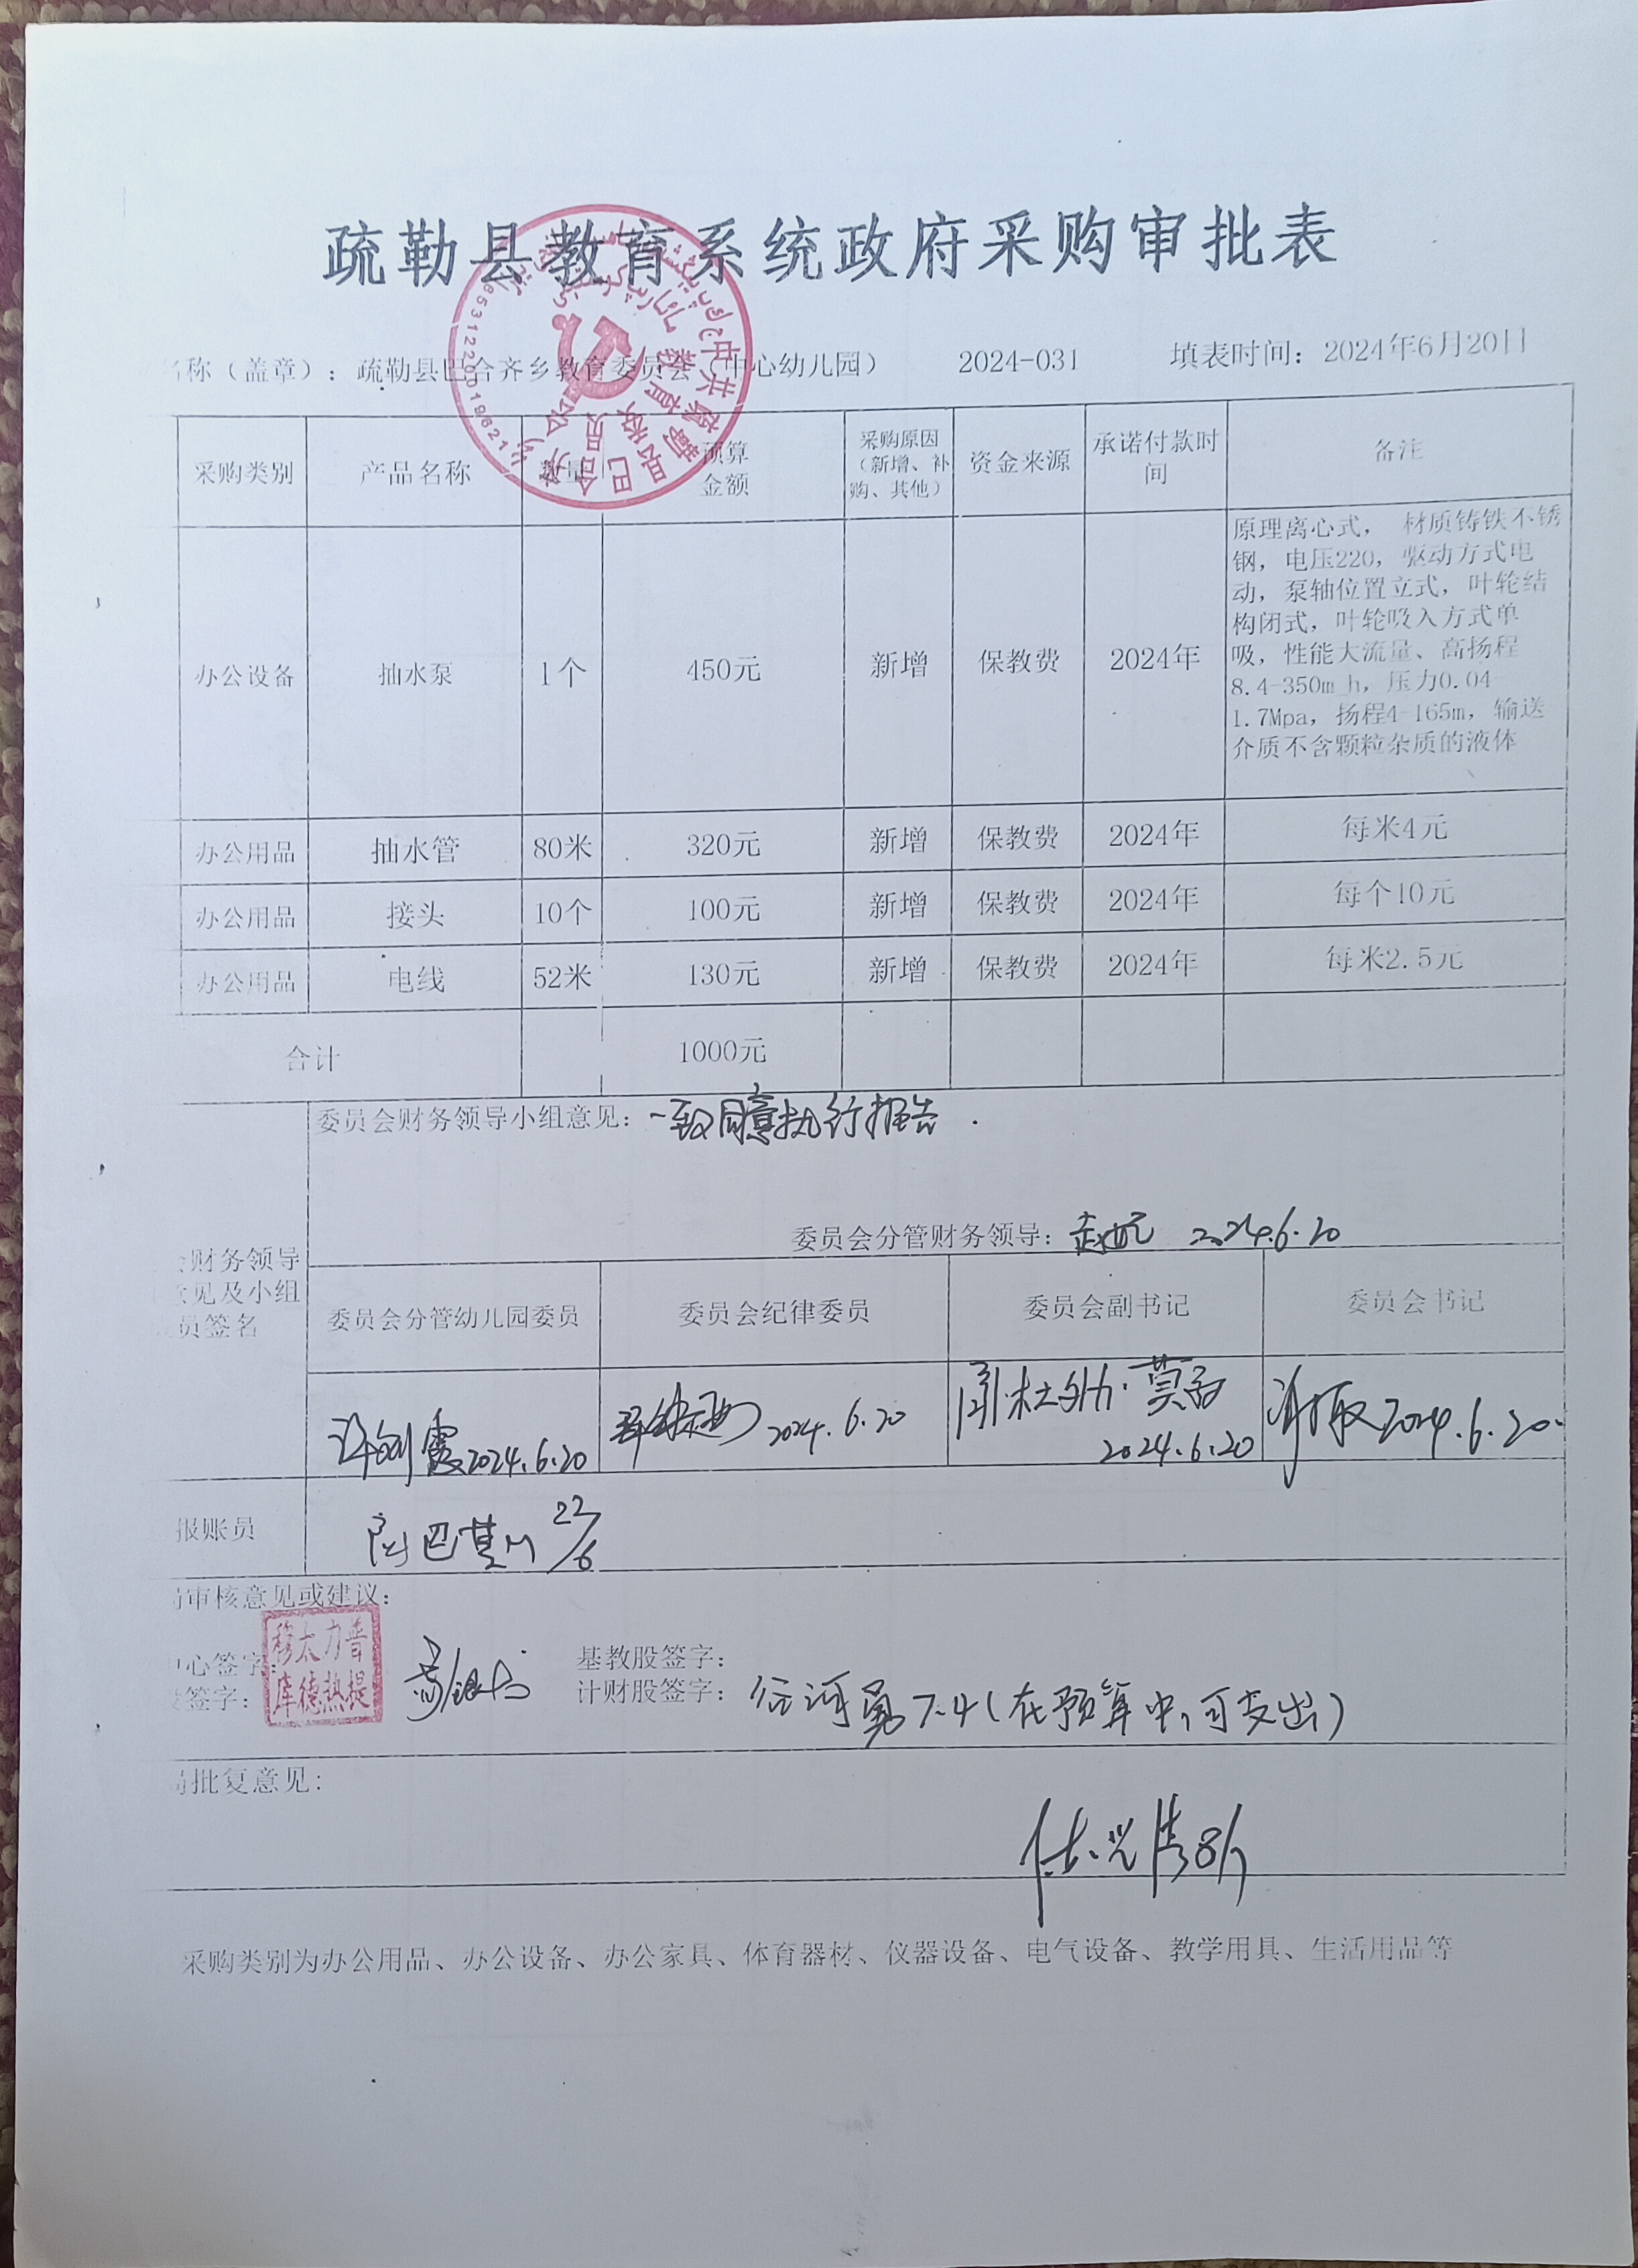 疏勒县教育系统政府采购审批表
名称（盖章）：疏勒县巴合齐乡教育委员会（中心幼儿园） 2024-031 填表时间：2024年6月20日
采购类别 产品名称 数量 预算金额 采购原因（新增、补购、其他） 资金来源 承诺付款时间 备注
办公设备 抽水泵 1个 450元 新增 保教费 2024年
原理离心式， 材质铸铁不锈
钢，电压220，驱动方式电
动，泵轴位置立式，叶轮结
构闭式，叶轮吸入方式单
吸，性能大流量、高扬程
8.4-350m_h，压力0.04-
1.7Mpa，扬程4-165m，输送
介质不含颗粒杂质的液体
办公用品 抽水管 80米 320元 新增 保教费 2024年 每米4元
办公用品 接头 10个 100元 新增 保教费 2024年 每个10元
办公用品 电线 52米 130元 新增 保教费 2024年 每米2.5元
合计 1000元
委员会财务领导小组意见：一致同意执行报告.
委员会分管财务领导： 2024.6.20
财务领导
意见及小组
员签名
委员会分管幼儿园委员 委员会纪律委员 委员会副书记 委员会书记
2024.6.20 2024.6.20 2024.6.20 2024.6.20
报账员 22/6
审核意见或建议：
心签字： 基教股签字：
签字： 计财股签字： 7.4（在预算中，可支出）
穆太力普
库德热提
批复意见：
采购类别为办公用品、办公设备、办公家具、体育器材、仪器设备、电气设备、教学用具、生活用品等